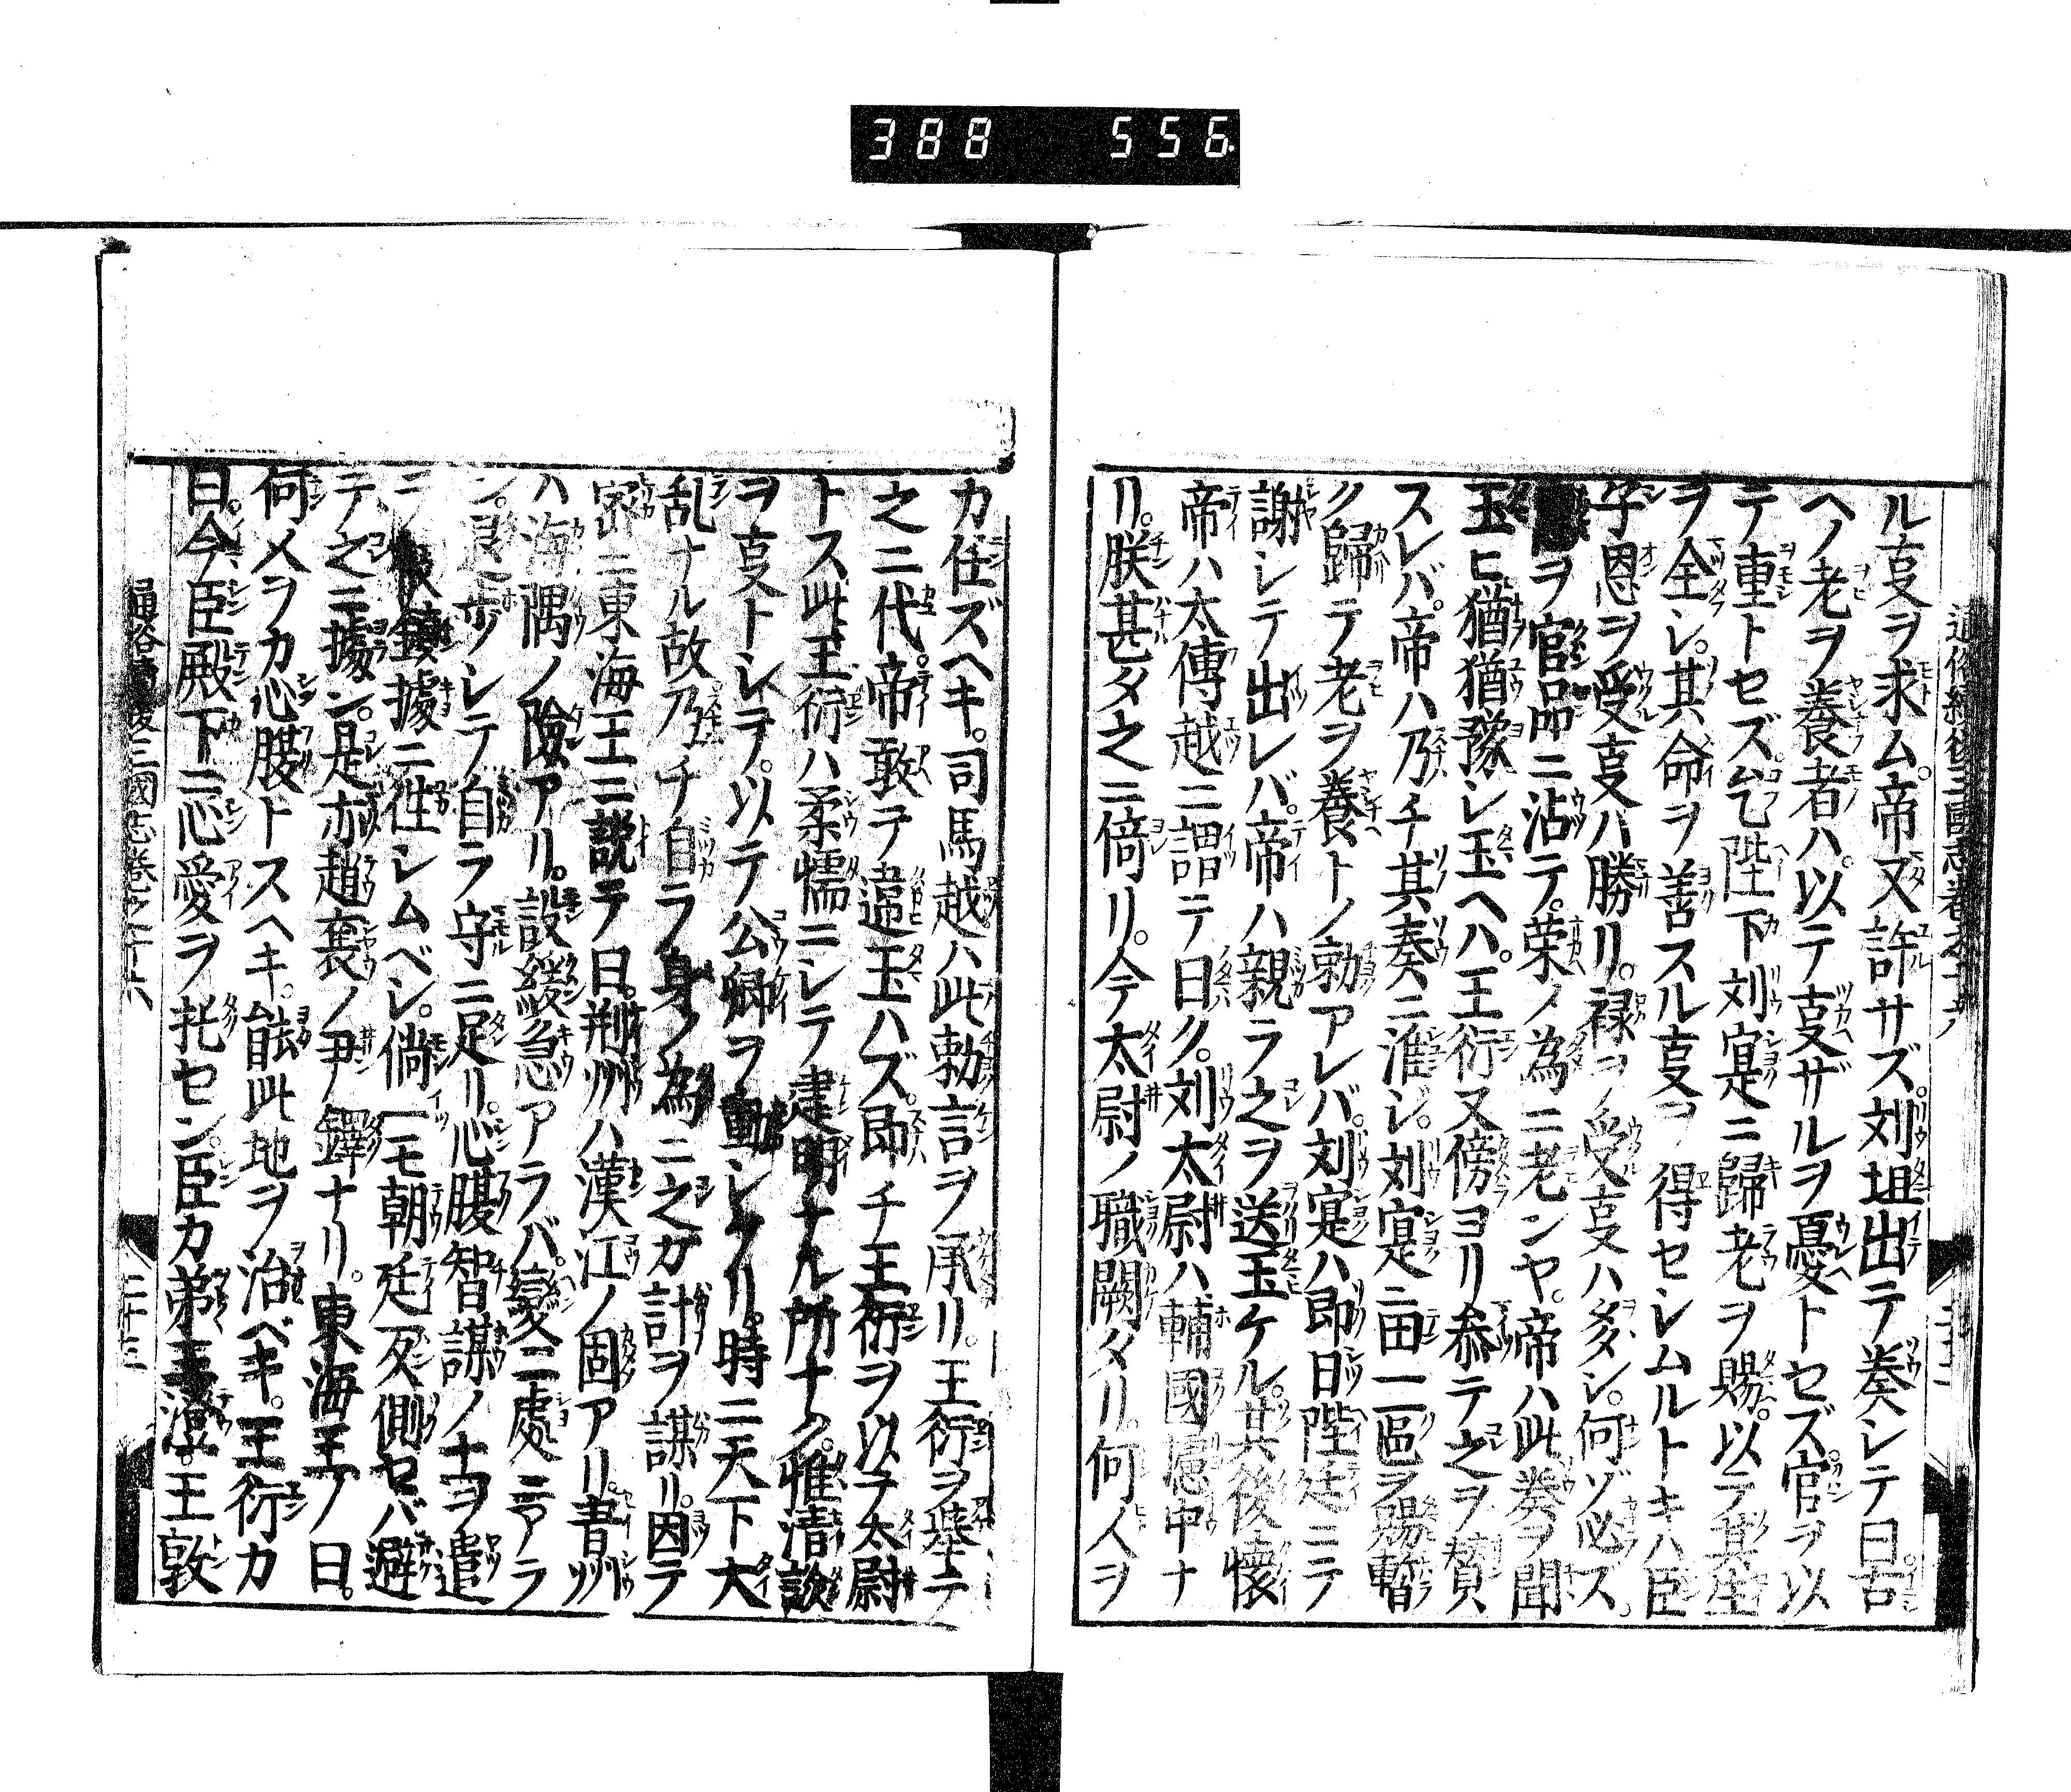 388 556
ル㕝ヲ求ム。帝又許サズ。刘坦出テ奏シテ曰古
ヘノ老ヲ養者ハ。以テ㕝ザルヲ憂トセズ。官ヲ以
テ重トセズ。乞陛下刘寔ニ歸老ヲ賜。以テ其生
ヲ全シ。其命ヲ善スル㕝ヲ得セシムルトキハ臣
子恩ヲ受㕝ハ勝リ。禄ヲ受㕝ハ多シ。何ゾ必ズ
ヲ官品ニ沾テ。荣ノ為ニ老ンヤ。帝ハ此奏ヲ聞
玉ヒ猶猶豫シ玉ヘハ。王衍又傍ヨリ恭テ之ヲ賛
スレバ。帝ハ乃チ其奏ニ准シ。刘寔ニ田一區ヲ賜暫
ク歸テ老ヲ養トノ勅アレバ。刘寔ハ即日陛廷ニテ
謝シテ出レバ。帝ハ親ラ之ヲ送玉ケル。其後懷
帝ハ太傳越ニ謂テ曰ク。刘太尉ハ輔國憲中ナ
リ。朕甚タ之ニ倚リ。今太尉ノ職闕タリ。何人ヲ
カ任ズヘキ。司馬越ハ此勅言ヲ承リ。王衍ヲ舉テ
之ニ代。帝敢テ違玉ハズ。即チ王衍ヲ以テ太尉
トス此王衍ハ柔懦ニシテ建明ナル所ナク。惟清談
ヲ㕝トシテ。以テ公卿ヲ動シケリ。時ニ天下大
乱ナル故乃チ自ラ身ノ為ニ之カ計ヲ謀リ。因テ
密ニ東海王ニ説テ曰。荆州ハ漢江ノ固アリ。青州
ハ海隅ノ險アリ。設緩急アラバ。變ニ處ニアラ
ン。是ニ歩シテ自ラ守ニ足リ。心腹智謀ノ士ヲ遣
テ之ニ據ン。是亦趙襄ノ尹鐸ナリ。東海王ノ曰。
何人ヲカ心腹トスヘキ。能此地ヲ治ベキ。王衍カ
曰。今臣殿下ニ心愛ヲ托セン。臣カ弟王澄。王敦
二十三